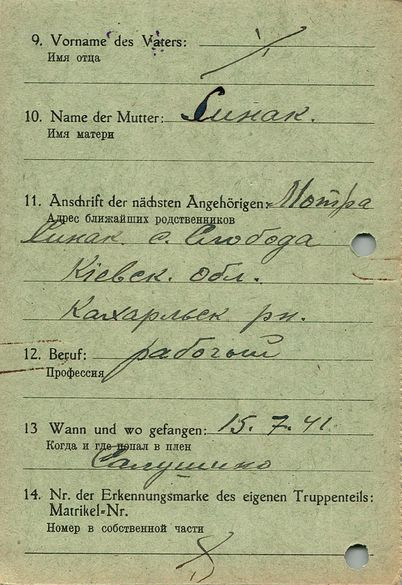 9. Vorname des Vaters:
Имя отца
10. Name der Mutter: Синак.
Имя матери
11. Anschrift der nächsten Angehörigen: Мотра
Адрес ближайших родственников
Синак с. Слобода
Кіевск. обл.
Кахарлыск рн.
12. Beruf: рабочый
Профессия
13 Wann und wo gefangen: 15. 7. 41.
Когда и где попал в плен
Салушино
14. Nr. der Erkennungsmarke des eigenen Truppenteils:
Matrikel-Nr.
Номер в собственной части